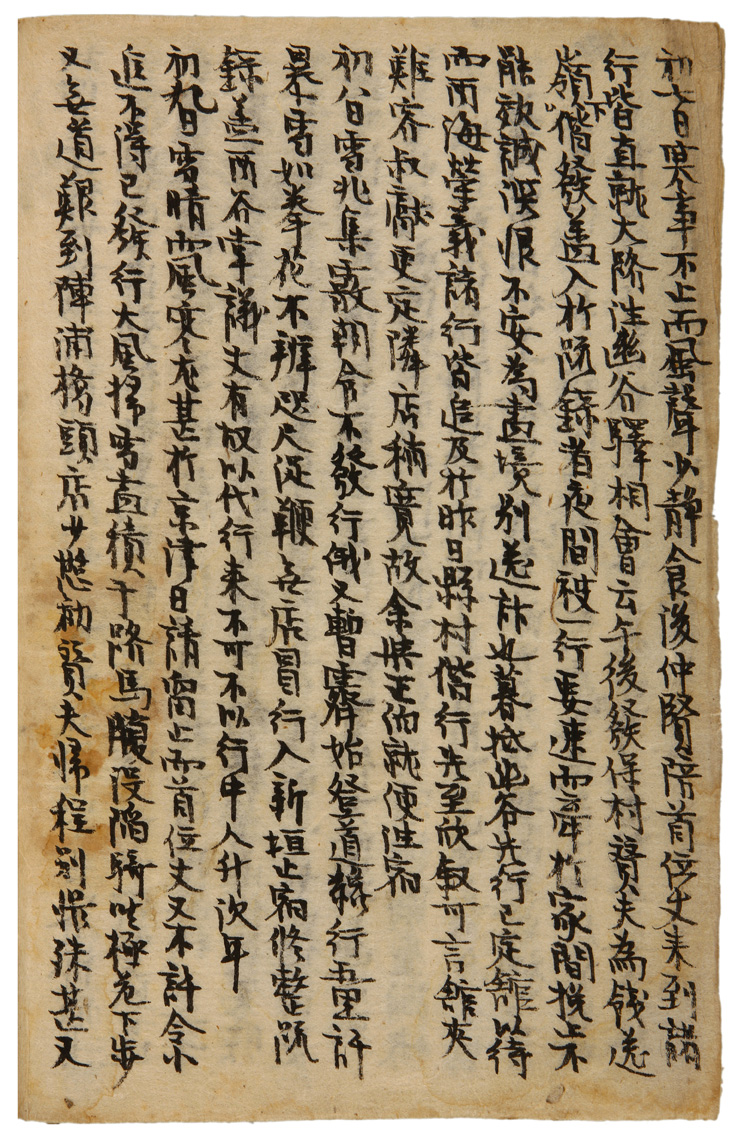 初七日寒事不止而風聲少靜食後仲賢陪首位丈來到諸
行皆直就大路泩幽谷驛相會云午後發保村賚夫為餞送
嶺下偕發盖入於疏錄者夜間被一行要速而牽於家間挽止不
能效誠深恨不安為盡境別送計也暮抵幽谷先行已定館以待
而雨海榮義諸行皆追及於昨日縣村偕行先至欣叙可言館夾
難容叔獻更定隣店稍寬故余與正伯就便泩宿
初八日雪兆集霰朝令不發行俄又暫霽始登道纔行五里許
暴雪如拳花不辨咫尺促鞭無店冒行入新垣止宿修整疏
錄盖兩谷掌議丈有故以代行來不可不以行中人升次耳
初九日雪晴而風寒尤甚於京津日請留止而首位丈又不許令小
追不得已發行大風掃雪盡積于路馬腹沒陷騎坐極危下步
又無道艱到陣浦橋頭店少憩勸賚夫歸程別悵殊甚又